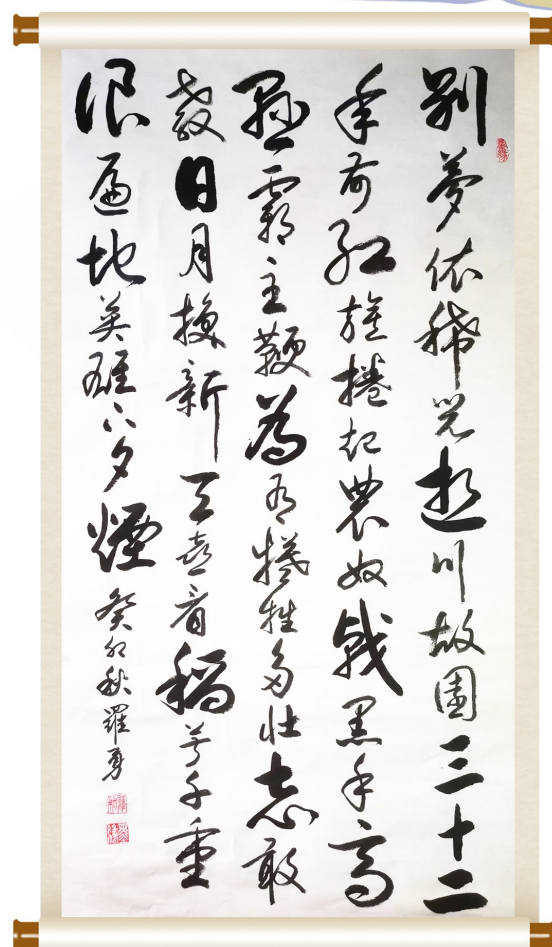 別夢依稀咒逝川故園三十二
年前紅旗捲起農奴戟黑手高
懸霸主鞭為有犧牲多壯志敢
教日月換新天喜看稻菽千重
浪遍地英雄下夕煙 癸卯秋羅勇